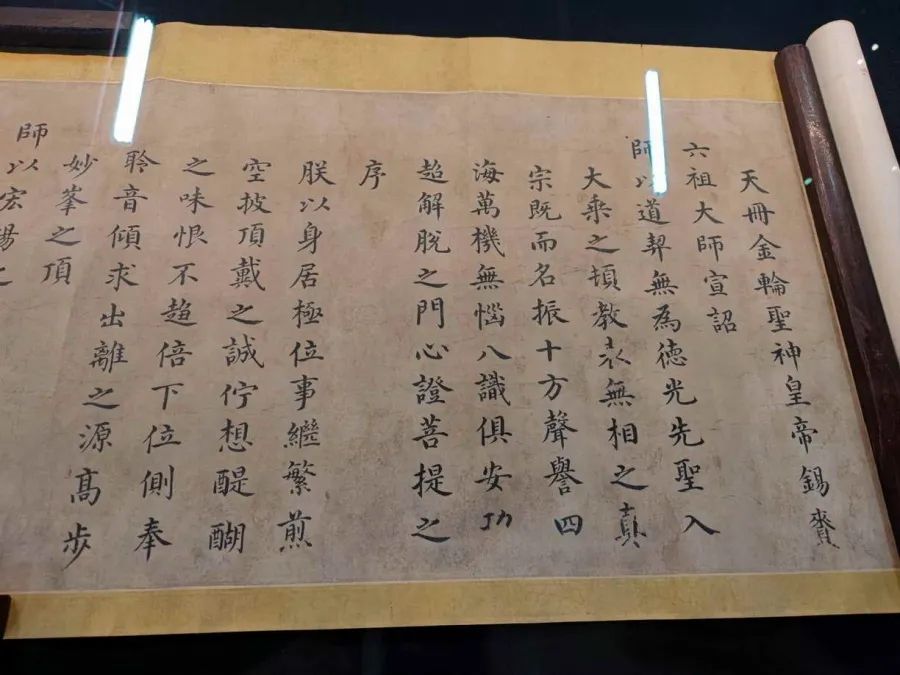 天冊金輪聖神皇帝錫賚
六祖大師宣詔
師以道契無為德光先聖入
大乘之頓教表無相之真
宗既而名振十方聲譽四
海萬機無惱八識俱安功
超解脫之門心證菩提之
序
朕以身居極位事繼繁煎
空披頂戴之誠佇想醍醐
之味恨不趨倍下位側奉
聆音傾求出離之源高步
妙峯之頂
師以宏揚之